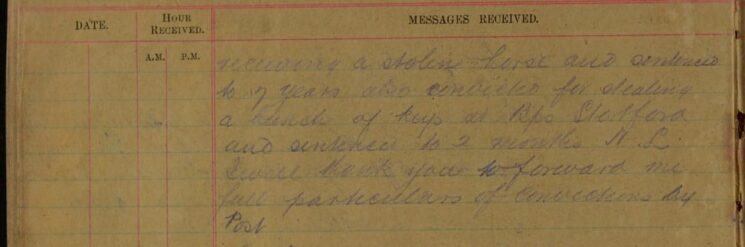 DATE. HOUR RECEIVED. MESSAGES RECEIVED.
A.M. P.M.
receiving a stolen horse and sentenced
to 7 years also convicted for stealing
a bunch of keys at Bps Stortford
and sentenced to 2 months H. L.
I will thank you to forward me
full particulars of convictions by
Post